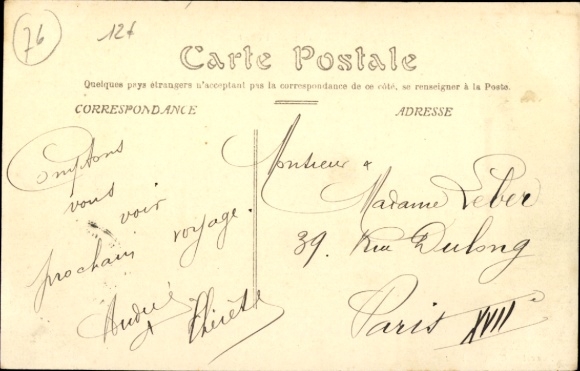 76
12f
Carte Postale
Quelques pays étrangers n'acceptant pas la correspondance de ce côté, se renseigner à la Poste.
CORRESPONDANCE
ADRESSE
Comptons
vous
voir
prochain voyage.
André
&
Monsieur &
Madame Leber
39. Rue Dulong
Paris XVIIe